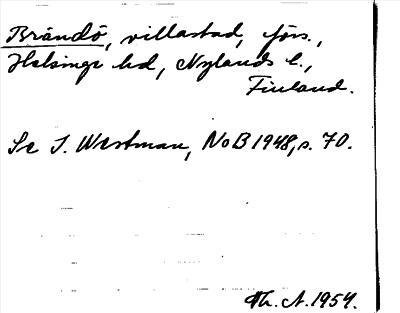 Brändö, villastad, förs.,
Helsinge hd, Nylands l.,
Finland.
Se I. Westman, NoB 1948, s. 70.
Th. A. 1954.